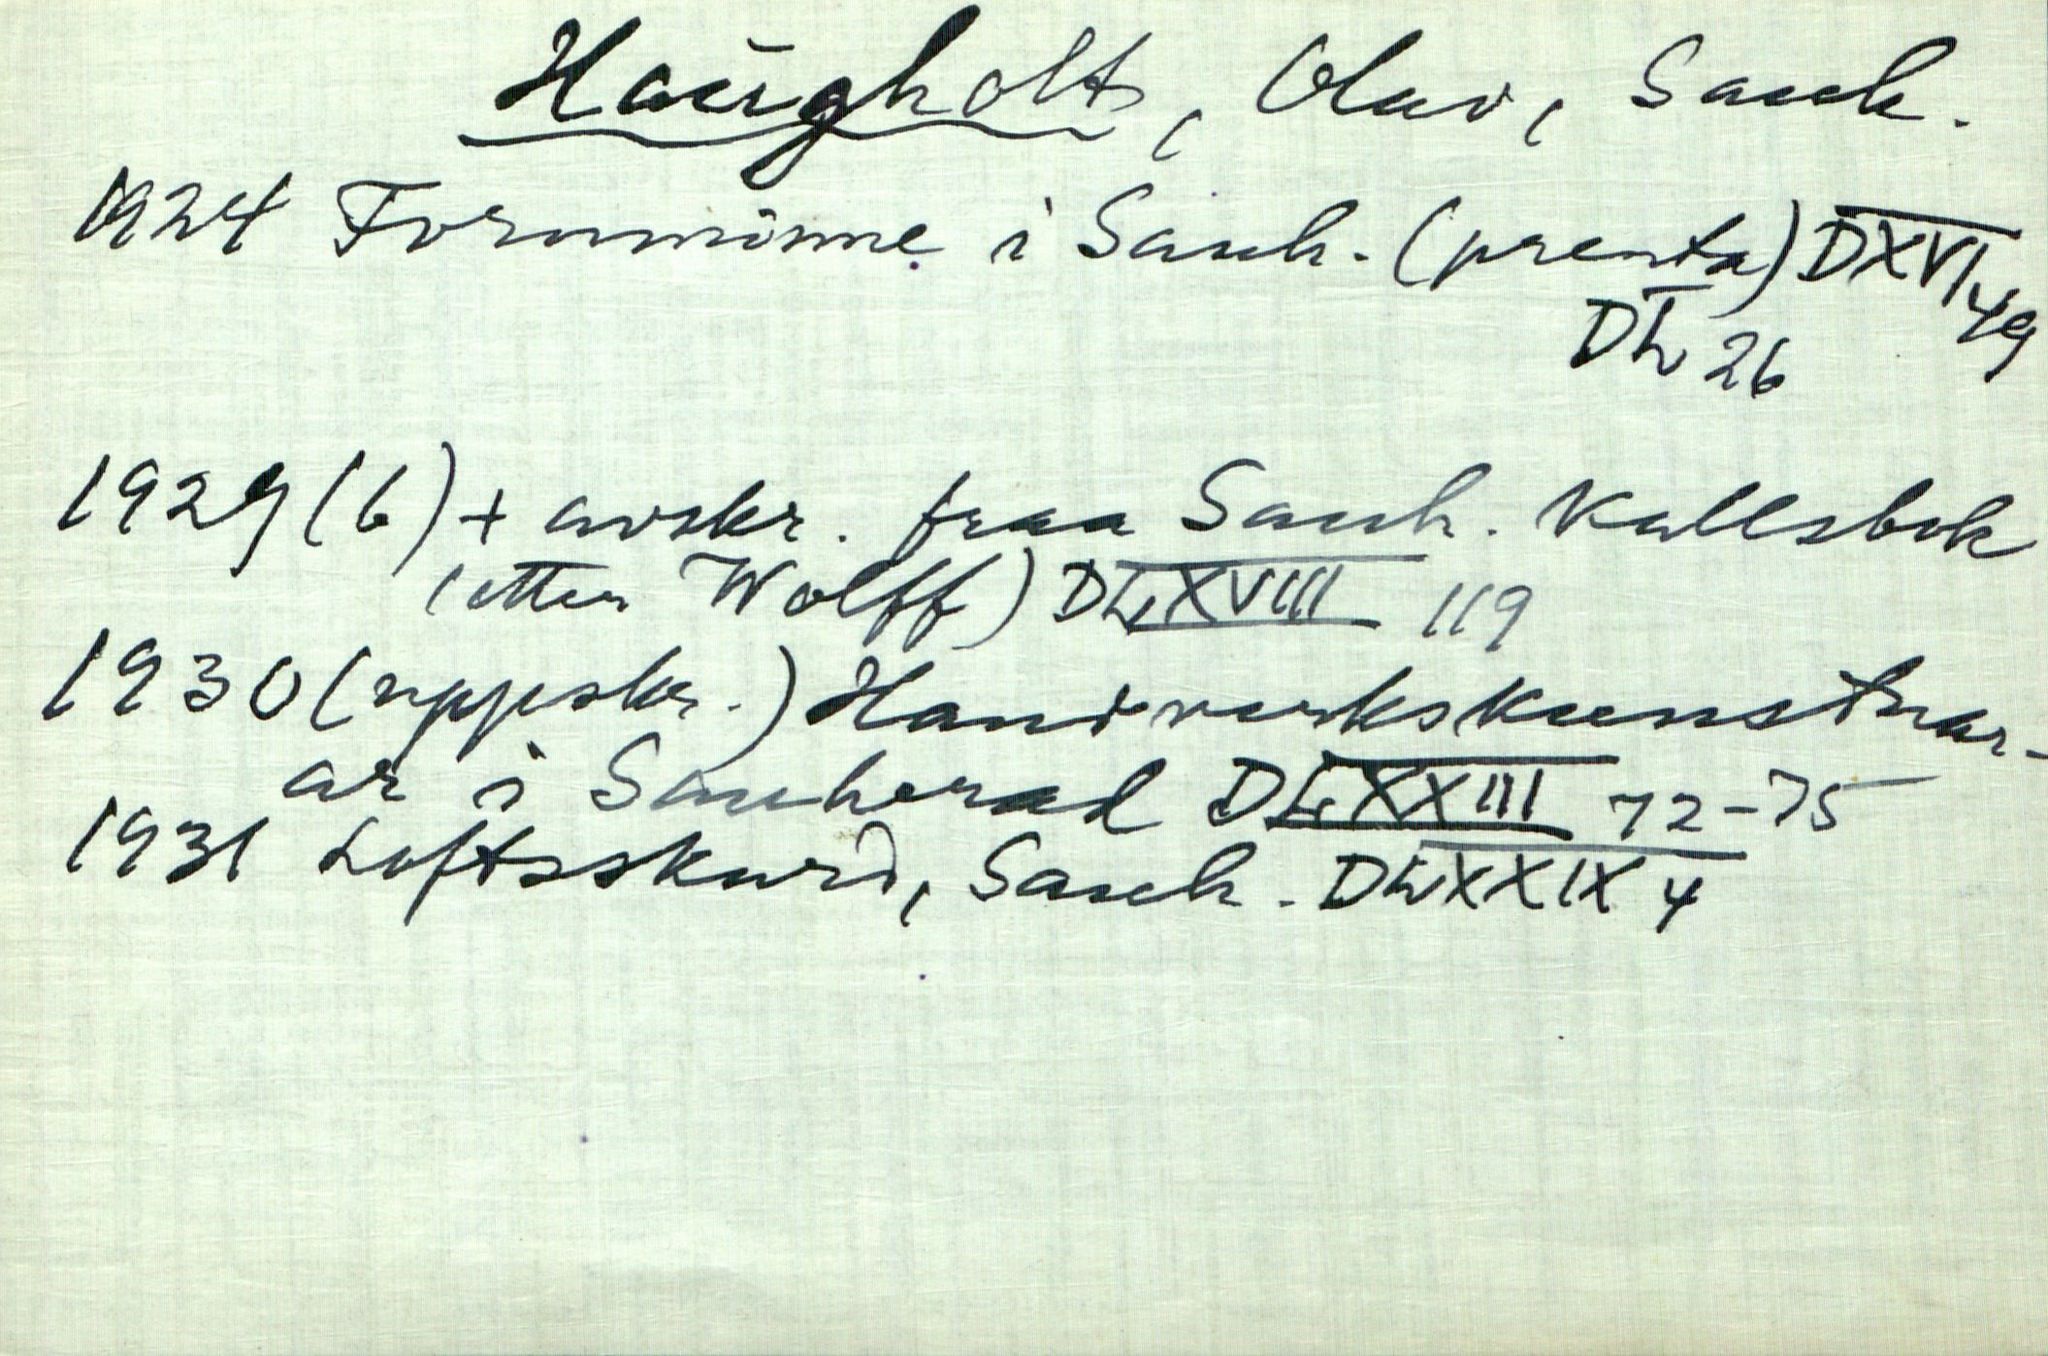 Haugholt, Olav, Sauh.
1924 Fornminne i Sauh. (prenta) DXVI, 49
26
1929 (6) + avskr. fraa Sauh. Kallsbok
(etter Wolff) XVIII 119
1930 (uppskr.) Handverkskunstnar-
ar i Sauherad XXIII 72-75
1931 Loftsskurd, Sauh. XXIX 4